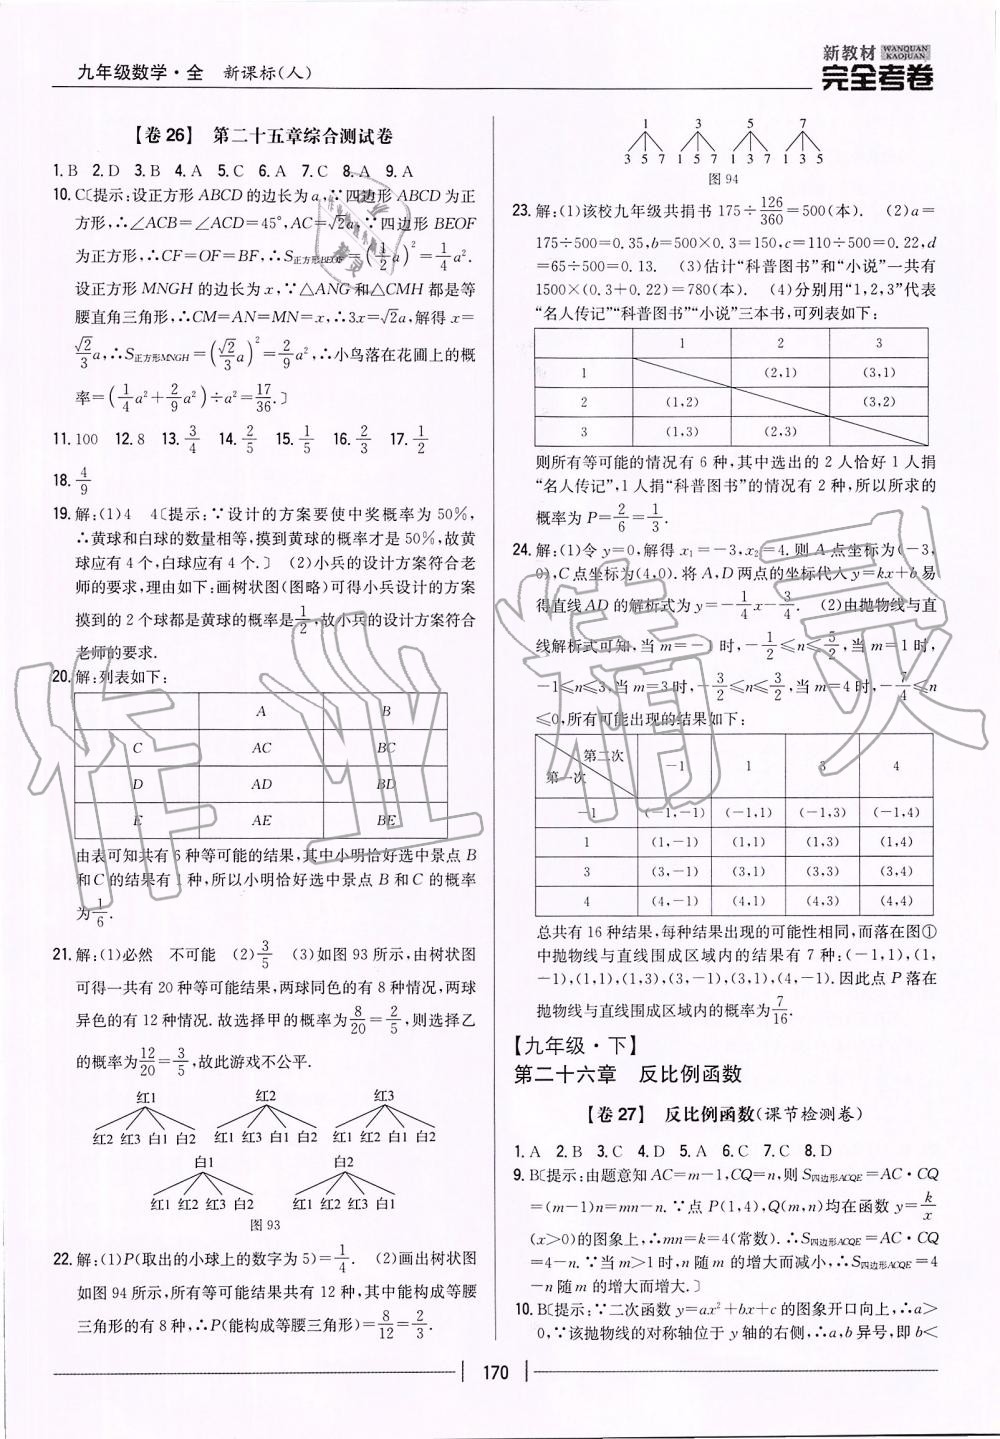 九年级数学·全 新课标(人)
新教材 WANQUAN KAOJUAN
完全考卷
【卷26】 第二十五章综合测试卷
1. B 2. D 3. B 4. A 5. C 6. A 7. C 8. A 9. A
10. C〔提示:设正方形 ABCD 的边长为 a,∵四边形 ABCD 为正
方形,∴∠ACB=∠ACD=45°,AC=√2a,∵四边形 BEOF
为正方形,∴CF=OF=BF,∴S正方形BEOF=(1/2 a)²=1/4 a².
设正方形 MNGH 的边长为 x,∵△ANG 和△CMH 都是等
腰直角三角形,∴CM=AN=MN=x,∴3x=√2a,解得 x=
√2/3 a,∴S正方形MNGH=(√2/3 a)²=2/9 a²,∴小鸟落在花圃上的概
率=(1/4 a²+2/9 a²)÷a²=17/36.〕
11. 100 12. 8 13. 3/4 14. 2/5 15. 1/5 16. 2/3 17. 1/2
18. 4/9
19. 解:(1)4 4〔提示:∵设计的方案要使中奖概率为 50%,
∴黄球和白球的数量相等,摸到黄球的概率才是 50%,故黄
球应有 4 个,白球应有 4 个.〕 (2)小兵设计的方案符合老
师的要求,理由如下:画树状图(图略)可得小兵设计的方案
摸到的 2 个球都是黄球的概率是1/2,故小兵的设计方案符合
老师的要求.
20. 解:列表如下:
A B
C AC BC
D AD BD
E AE BE
由表可知共有 6 种等可能的结果,其中小明恰好选中景点 B
和 C 的结果有 1 种,所以小明恰好选中景点 B 和 C 的概率
为1/6.
21. 解:(1)必然 不可能 (2)3/5 (3)如图 93 所示,由树状图
可得一共有 20 种等可能结果,两球同色的有 8 种情况,两球
异色的有 12 种情况.故选择甲的概率为8/20=2/5,则选择乙
的概率为12/20=3/5,故此游戏不公平.
红1 红2 红3
红2 红3 白1 白2 红1 红3 白1 白2 红1 红2 白1 白2
白1 白2
红1 红2 红3 白2 红1 红2 红3 白1
图 93
22. 解:(1)P(取出的小球上的数字为 5)=1/4. (2)画出树状图
如图 94 所示,所有等可能结果共有 12 种,其中能构成等腰
三角形的有 8 种,∴P(能构成等腰三角形)=8/12=2/3.
1 3 5 7
3 5 7 1 5 7 1 3 7 1 3 5
图 94
23. 解:(1)该校九年级共捐书 175÷126/360=500(本). (2)a=
175÷500=0.35,b=500×0.3=150,c=110÷500=0.22,d
=65÷500=0.13. (3)估计“科普图书”和“小说”一共有
1500×(0.3+0.22)=780(本). (4)分别用“1,2,3”代表
“名人传记”“科普图书”“小说”三本书,可列表如下:
1 2 3
1 (2,1) (3,1)
2 (1,2) (3,2)
3 (1,3) (2,3)
则所有等可能的情况有 6 种,其中选出的 2 人恰好 1 人捐
“名人传记”,1 人捐“科普图书”的情况有 2 种,所以所求的
概率为 P=2/6=1/3.
24. 解:(1)令 y=0,解得 x₁=-3,x₂=4.则 A 点坐标为(-3,
0),C 点坐标为(4,0).将 A,D 两点的坐标代入 y=kx+b 易
得直线 AD 的解析式为 y=-1/4 x-3/4. (2)由抛物线与直
线解析式可知,当 m=-1 时,-1/2≤n≤5/2,当 m=1 时,
-1≤n≤3,当 m=3 时,-3/2≤n≤3/2,当 m=4 时,-7/4≤n
≤0,所有可能出现的结果如下:
第二次 第一次 -1 1 3 4
-1 (-1,-1) (-1,1) (-1,3) (-1,4)
1 (1,-1) (1,1) (1,3) (1,4)
3 (3,-1) (3,1) (3,3) (3,4)
4 (4,-1) (4,1) (4,3) (4,4)
总共有 16 种结果,每种结果出现的可能性相同,而落在图①
中抛物线与直线围成区域内的结果有 7 种:(-1,1),(1,
-1),(1,1),(1,3),(3,-1),(3,1),(4,-1).因此点 P 落在
抛物线与直线围成区域内的概率为7/16.
【九年级·下】
第二十六章 反比例函数
【卷27】 反比例函数(课节检测卷)
1. A 2. B 3. C 4. D 5. A 6. C 7. C 8. D
9. B〔提示:由题意知 AC=m-1,CQ=n,则 S四边形ACQE=AC·CQ
=(m-1)n=mn-n.∵点 P(1,4),Q(m,n)均在函数 y=k/x
(x>0)的图象上,∴mn=k=4(常数).∴S四边形ACQE=AC·CQ
=4-n.∵当 m>1 时,n 随 m 的增大而减小,∴S四边形ACQE=4
-n 随 m 的增大而增大.〕
10. B〔提示:∵二次函数 y=ax²+bx+c 的图象开口向上,∴a>
0,∵该抛物线的对称轴位于 y 轴的右侧,∴a,b 异号,即 b<
170
作业精灵